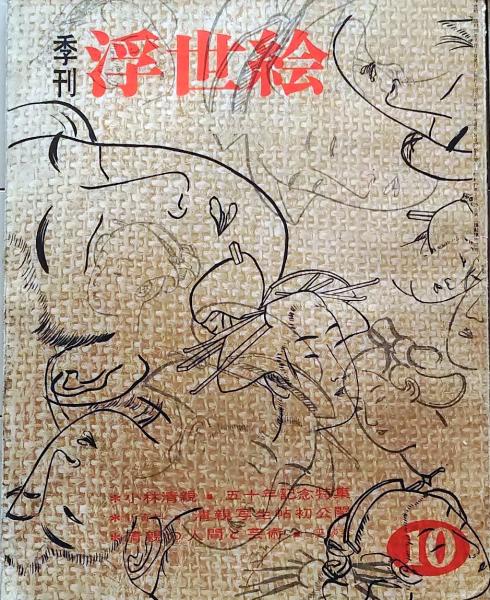 季刊
浮世絵
*小林清親・五十年記念特集
* 清親写生帖初公開
*清親の人間と芸術
10